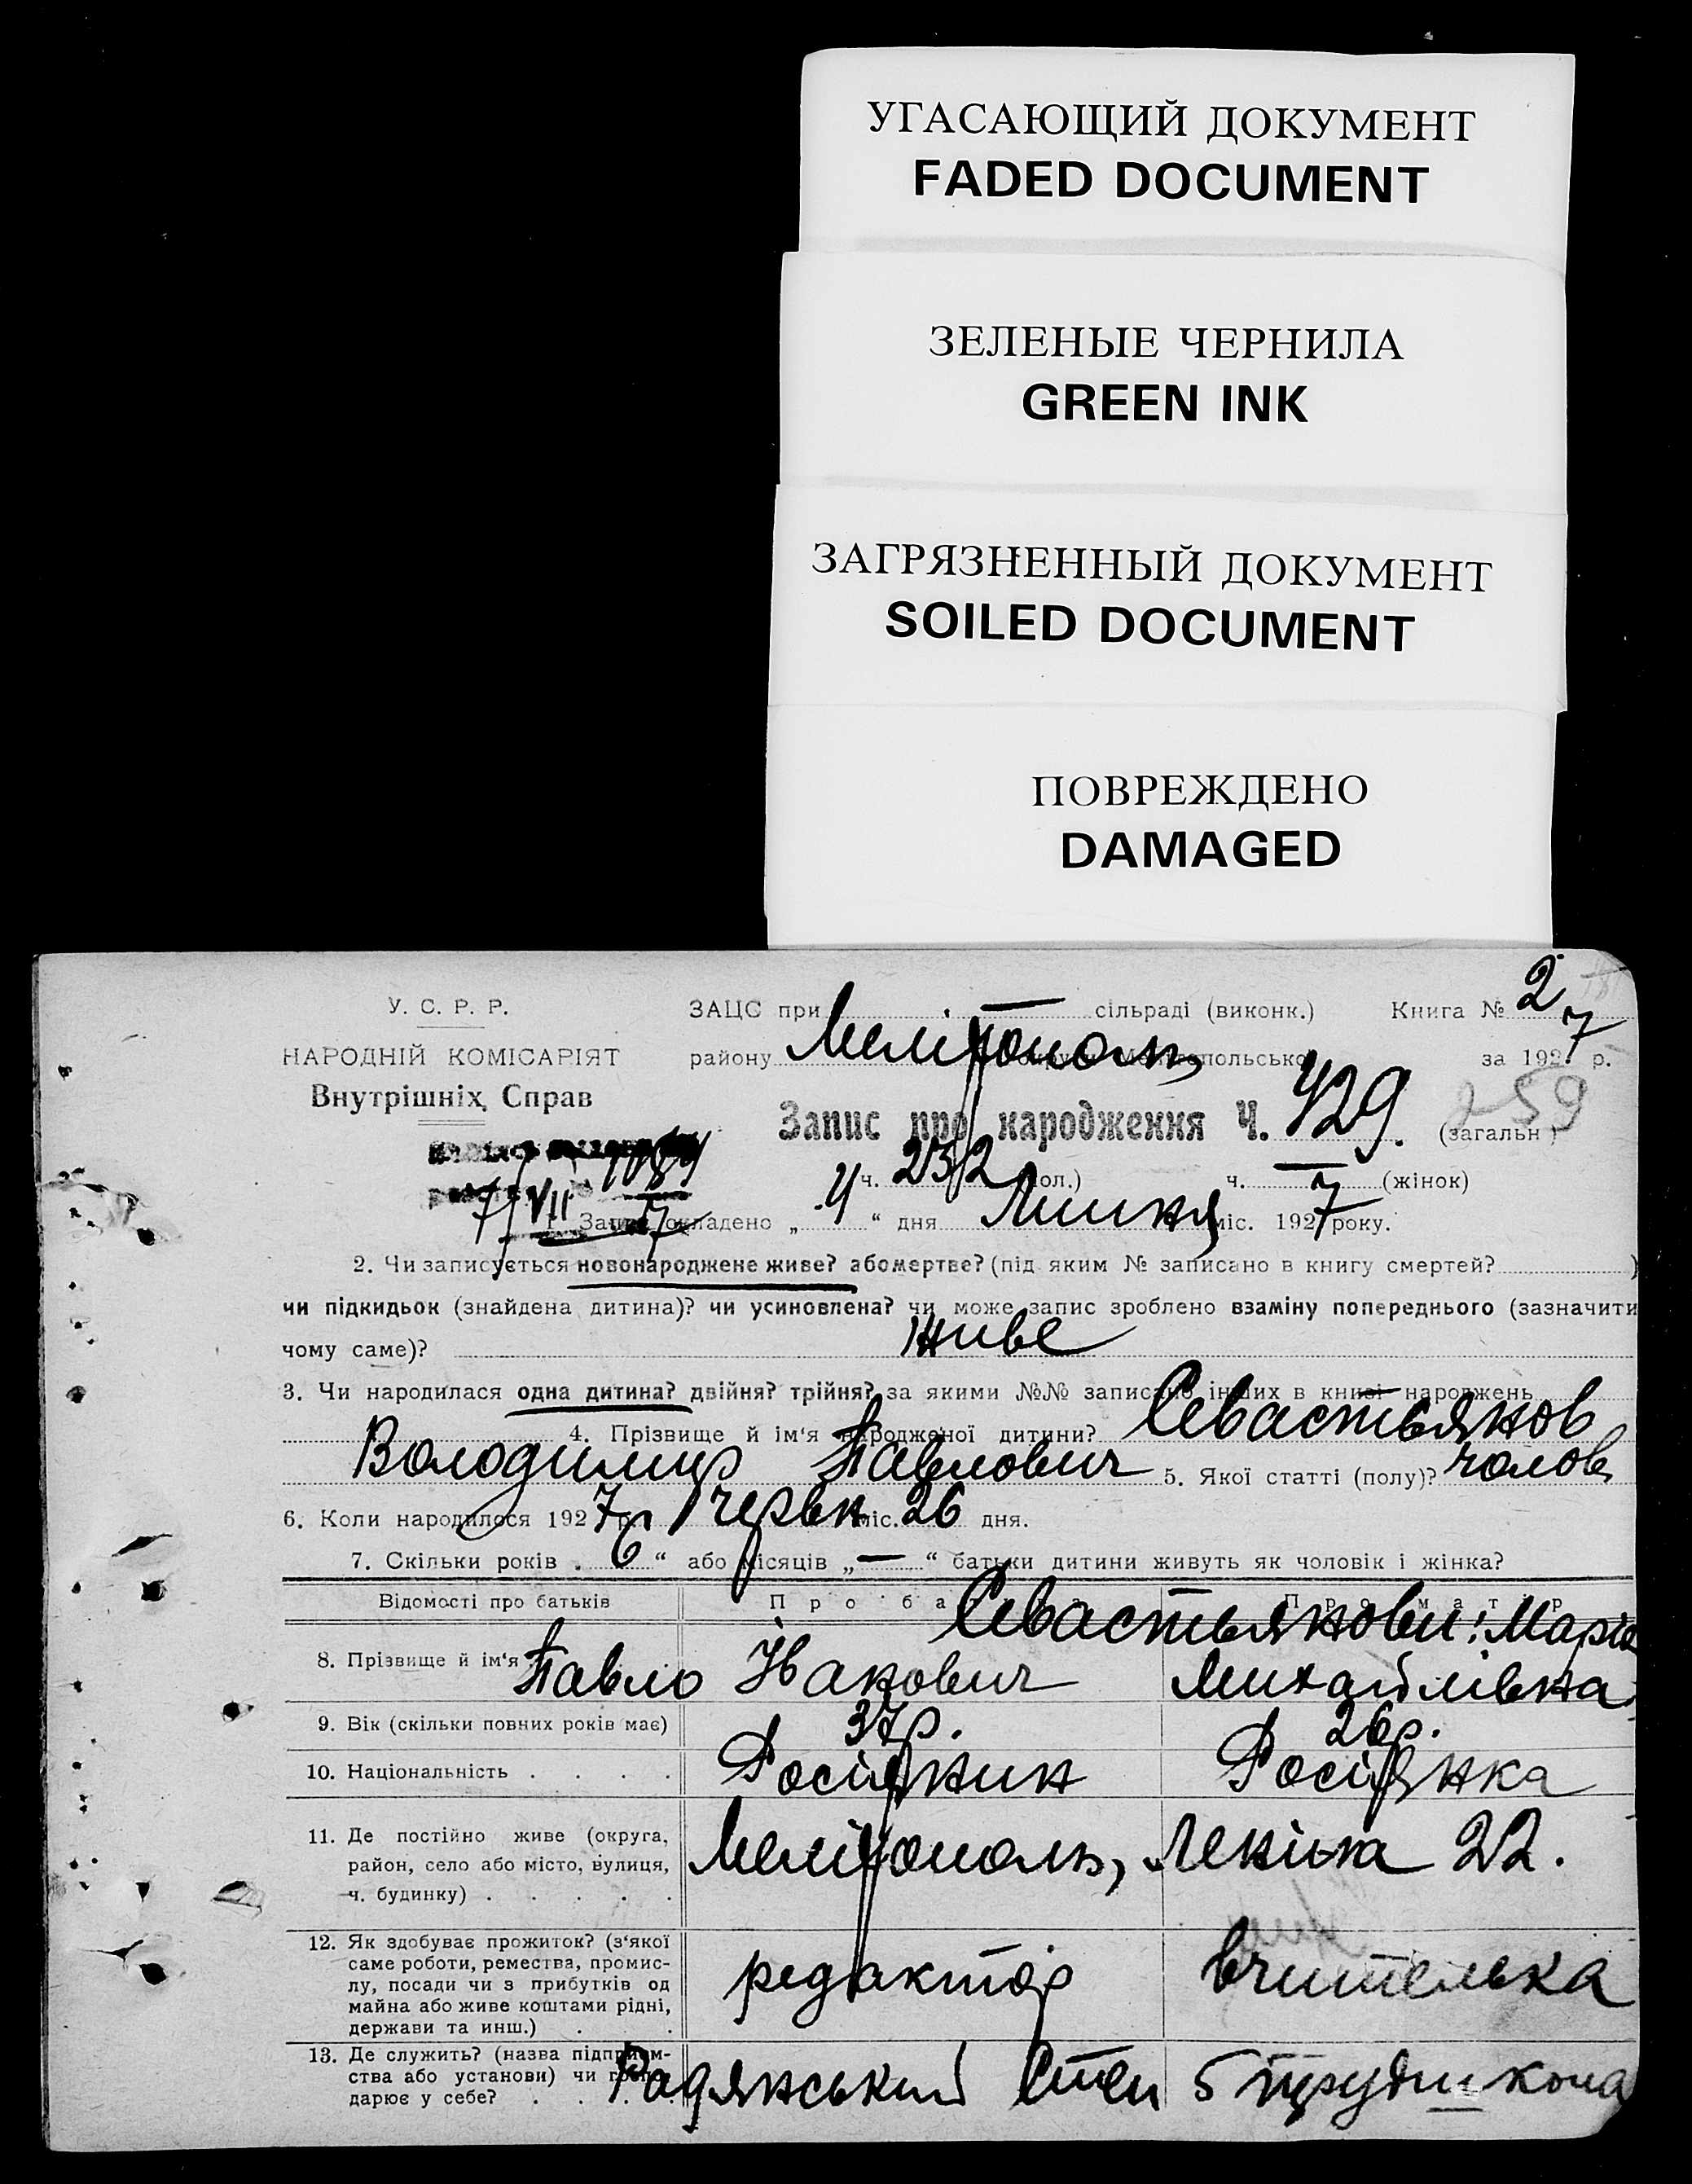 УГАСАЮЩИЙ ДОКУМЕНТ
FADED DOCUMENT
ЗЕЛЕНЫЕ ЧЕРНИЛА
GREEN INK
ЗАГРЯЗНЕННЫЙ ДОКУМЕНТ
SOILED DOCUMENT
ПОВРЕЖДЕНО
DAMAGED
У. С. Р. Р.
НАРОДНІЙ КОМІСАРІЯТ
Внутрішніх Справ
ЗАЦС при сільраді (виконк.) Книга № 2
району Мелітополь за 1927 р.
Запис про народження Ч. 429. (загальн.) 259
ч. 232 ч. — (жінок)
7/VII 7
1. Запис складено „4“ дня Липня міс. 1927 року.
2. Чи записується новонароджене живе? або мертве? (під яким № записано в книгу смертей? )
чи підкидьок (знайдена дитина)? чи усиновлена? чи може запис зроблено взаміну попереднього (зазначити
чому саме)? живе
3. Чи народилася одна дитина? двійня? трійня? за якими №№ записано інших в книзі народжень
4. Прізвище й ім'я народженої дитини? Севастьянов
Володимир Павлович 5. Якої статті (полу)? чолов
6. Коли народилося 1927 р. червн міс. 26 дня.
7. Скільки років „6“ або місяців „—“ батьки дитини живуть як чоловік і жінка?
Відомості про батьків
Севастьянови: Марія
8. Прізвище й ім'я Павло Михайлівна
9. Вік (скільки повних років має) 37 р. 26 р.
10. Національність . . . . Росіянин Росіянка
11. Де постійно живе (округа,
район, село або місто, вулиця,
ч. будинку) . . . . . Мелітополь, Леніна 22.
12. Як здобуває прожиток? (з'якої
саме роботи, ремества, промис-
лу, посади чи з прибутків од
майна або живе коштами рідні,
держави та инш.) . . редактор вчителька
13. Де служить? (назва підприєм-
ства або установи) чи госпо-
дарює у себе? . . . Радянський Степ 5 трудшкола